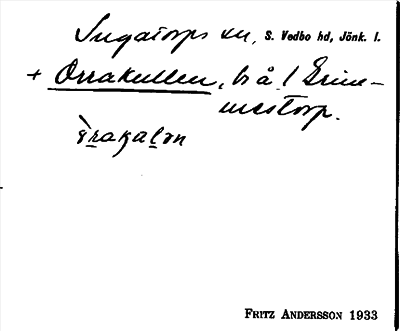 Ingatorps sn, S. Vedbo hd, Jönk. l.
+ Orrakullen, bs å. l Grim-
mestorp.
FRITZ ANDERSSON 1933